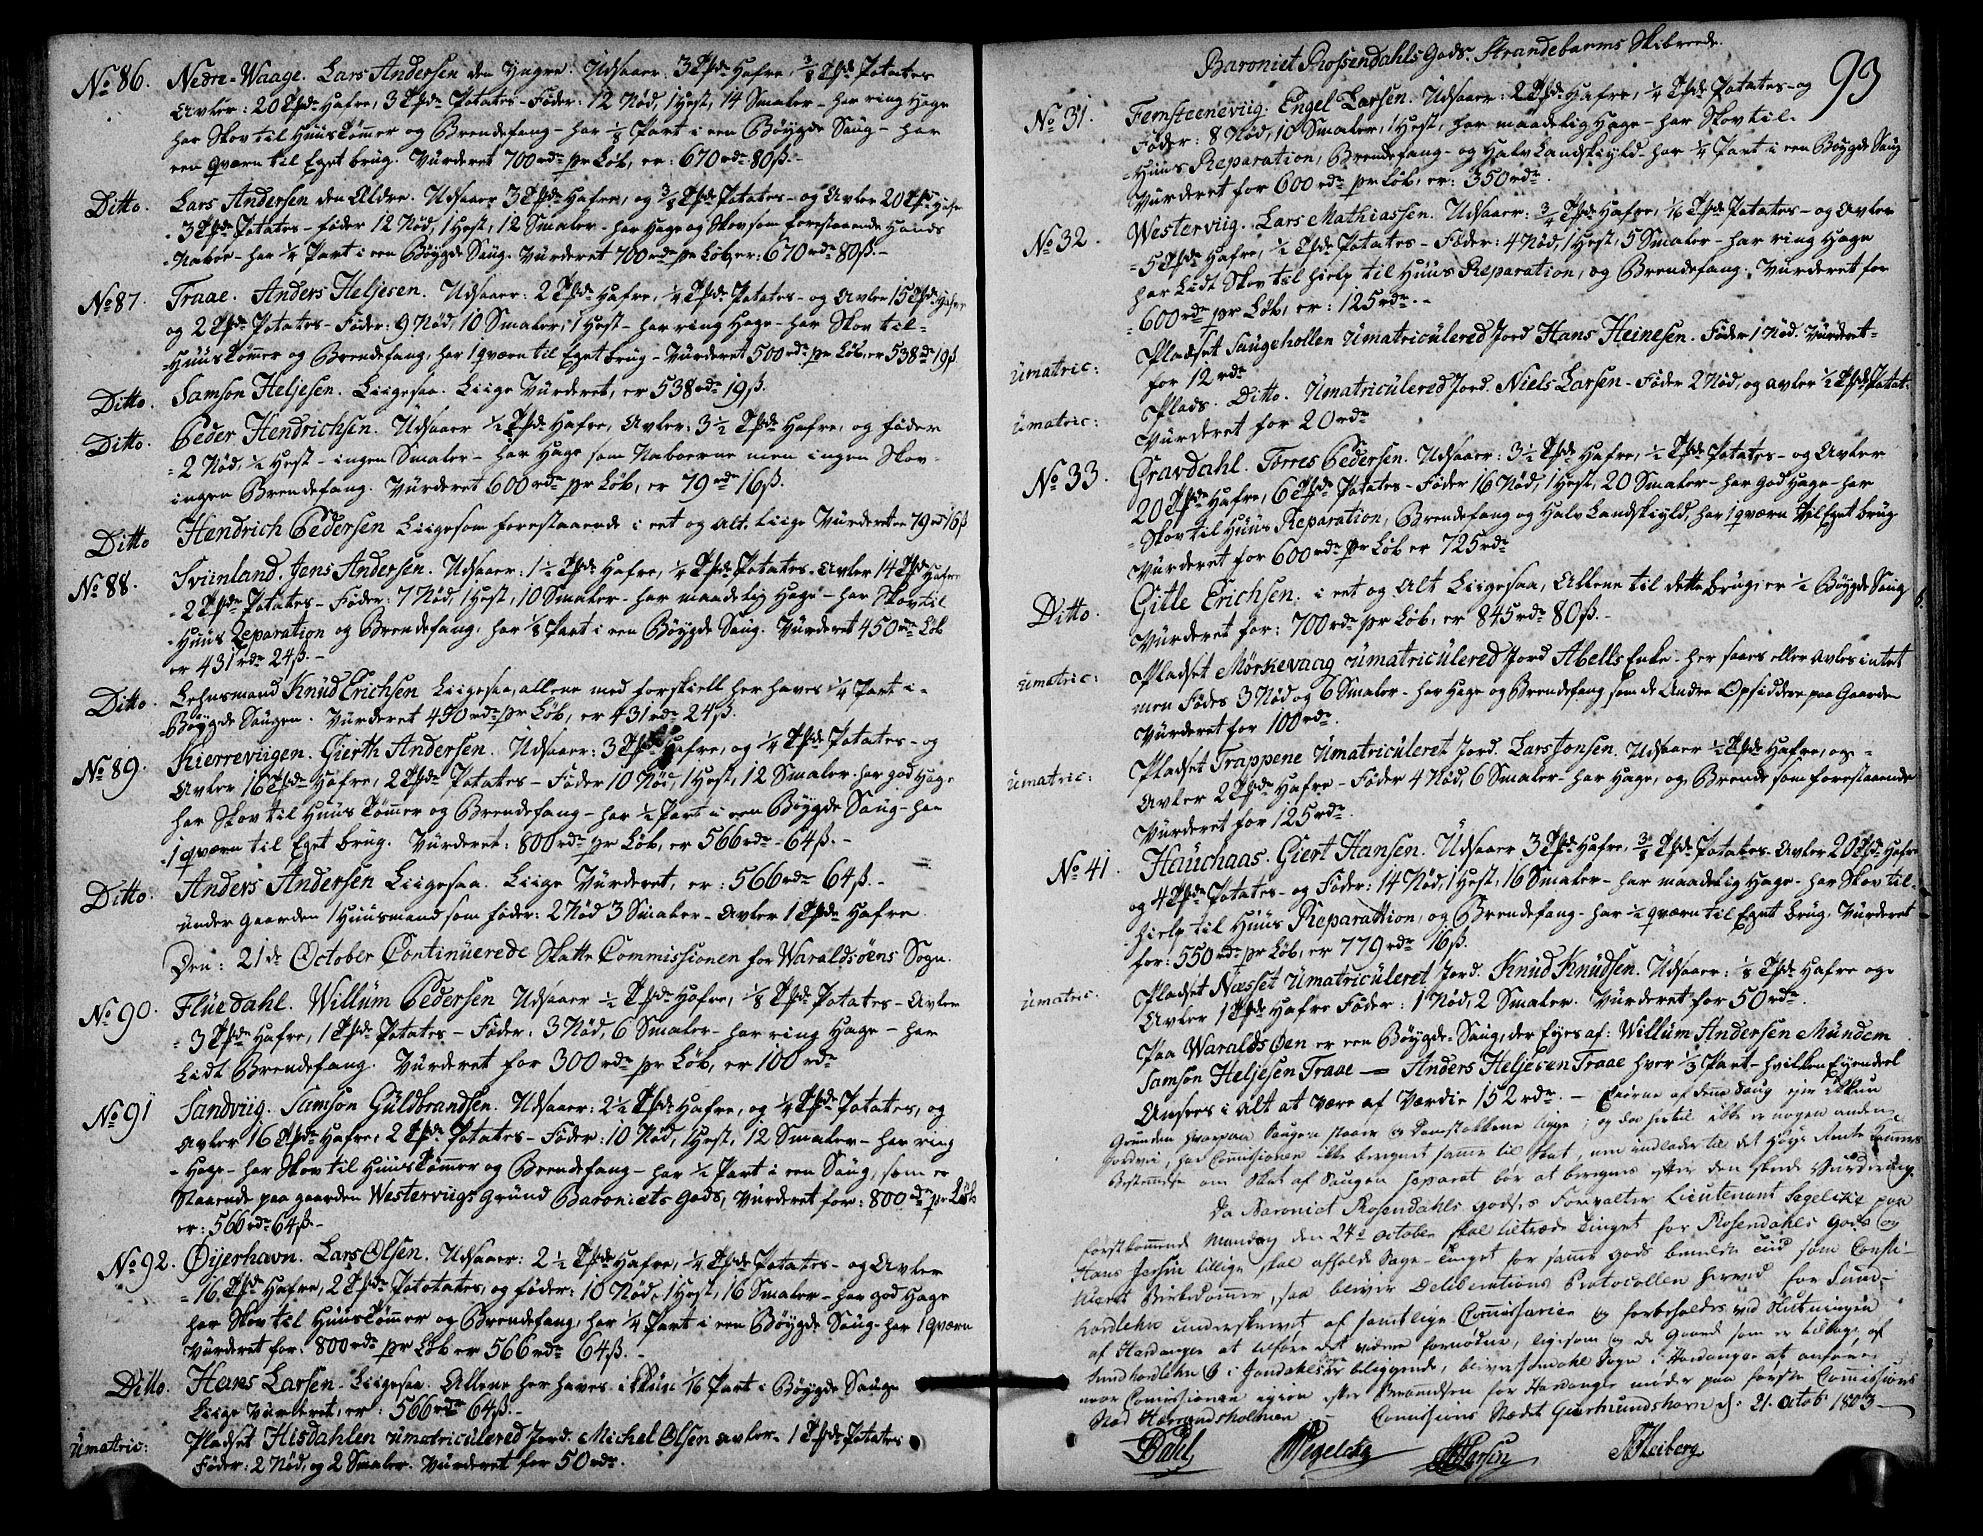 No 86. Nedre-Waage. Lars Andersen den Yngre. Udsaaer 3 Tpde Hafre, 3/8 Tpde Potates
Avler: 20 Tpde Hafre, 3 Tpde Potates - Föder: 12 Nöd, 1 Hest, 14 Smaler - har ring Hage
har Skov til Huustömmer og Brendefang - har 1/8 Part i een Böygde Saug - har
een Qværn til Eget brug. Vurderet 700 rdr pr Löb, er: 670 rdr 80 ß. -
Ditto. Lars Andersen den Ældre. Udsaaer 3 Tpde Hafre, og 3/8 Tpde Potates - og Avler 20 Tpde Hafre
3 Tpde Potates - föder 12 Nöd, 1 Hest, 12 Smaler - har Hage og Skov som forestaaende Hands
Naboe - har 1/4 Part i een Böygde Saug. Vurderet 700 rdr pr Löb, er: 670 rdr 80 ß. -
No 87. Traae. Anders Heljesen. Udsaaer: 2 Tpde Hafre, 1/4 Tpde Potates - og Avler 15 Tpde Hafre
og 2 Tpde Potates - Föder: 9 Nöd, 10 Smaler, 1 Hest - har ring Hage - har Skov til
Huustömmer og Brendefang, har 1 qværn til Eget brug - Vurderet 500 rdr pr Löb, er 538 rdr 19 ß
Ditto. Samson Heljesen. Liigesaa. Liige Vurderet, er 538 rdr 19 ß.
Ditto. Peder Hendrichsen. Udsaaer 1/2 Tpde Hafre, Avler: 3 1/2 Tpde Hafre, og föder
2 Nöd, 1/2 Hest - ingen Smaler - har Hage som Naboerne men ingen Skov
ingen Brendefang. Vurderet 600 rdr pr Löb, er 79 rdr 16 ß.
Ditto Hendrich Pedersen Liigesom forestaaende i eet og alt. Liige Vurderet er 79 rdr 16 ß
No 88. Sviinland. Jens Andersen. Udsaaer: 1 1/2 Tpde Hafre, 1/4 Tpde Potates - Avler 14 Tpde Hafre
2 Tpde Potates - Föder: 7 Nöd, 1 Hest, 10 Smaler - har maadelig Hage - har Skov til
Huus Reparation og Brendefang, har 1/8 Part i een Böygde Saug. Vurderet 450 rdr Löb
er 431 rdr 24 ß. -
Ditto. Lehnsmand Knud Erichsen Liigesaa, allene med forskiell her haves 1/4 Part i
Böygde Saugen. Vurderet 450 rdr pr Löb, er 431 rdr 24 ß.
No 89. Kierreviigen. Gierth Andersen. Udsaaer: 3 Tpde Hafre, og 1/4 Tpde Potates - og
Avler 16 Tpde Hafre, 2 Tpde Potates - Föder 10 Nöd, 1 Hest, 12 Smaler - har god Hage
har Skov til Huustömmer og Brendefang - har 1/2 Part i een Böygde Saug - har
1 qværn til Eget brug. Vurderet: 800 rdr pr Löb, er 566 rdr 64 ß. -
Ditto. Anders Andersen Liigesaa. Liige Vurderet, er: 566 rdr 64 ß. -
under gaarden 1 Huusmand som föder: 2 Nöd 3 Smaler - Avler 1 Tpde Hafre
Den: 21de October Continuerede Skatte Commissionen for Waraldsöens Sogn.
No 90. Fluedahl. Willum Pedersen Udsaaer 1/2 Tpde Hafre, 1/8 Tpde Potates - Avler
3 Tpde Hafre, 1 Tpde Potates - Föder: 3 Nöd, 6 Smaler - har ring Hage - har
Lidt Brendefang. Vurderet for 300 rdr pr Löb, er 100 rdr
No 91 Sandviig. Samson Guldbrandsen. Udsaaer: 2 1/2 Tpde Hafre, og 1/4 Tpde Potates, og
Avler 16 Tpde Hafre, 2 Tpde Potates - Föder: 10 Nöd, 1 Hest, 12 Smaler - har ring
Hage - har Skov til Huustömmer og Brendefang - har 1/2 Part i een Saug, som er
Staaende paa gaarden Westerviigs Grund Baroniets Gods, Vurderet for: 800 rdr pr Löb
er: 566 rdr 64 ß. -
No 92. Öijerhavn. Lars Olsen. Udsaaer: 2 1/2 Tpde Hafre, 1/4 Tpde Potates - og Avler
16 Tpde Hafre, 2 Tpde Pototates, og föder: 10 Nöd, 1 Hest, 16 Smaler - har god Hage
har Skov til Huustömmer og Brendefang, har 1/4 Part i een Böygde Saug - har 1 qværn
Vurderet for: 800 rdr pr Löb er 566 rdr 64 ß. -
Ditto. Hans Larsen - Liigesaa. Allene her haves ikkun 1/16 Part i Böygde Sauge
Liige Vurderet, er: 566 rdr 64 ß. -
Umatric: Pladset Hisdahlen umatriculered Jord. Michel Olsen avler 1 Tpde Potates
Föder: 2 Nöd, og 2 Smaler. Vurderet for 50 rdr.
93
Baroniet Rosendahls Gods. Strandebarms Skibrede.
No 31. Femsteeneviig. Engel Larsen. Udsaaer: 2 Tpde Hafre, 1/4 Tpde Potates - og
Föder: 8 Nöd, 10 Smaler, 1 Hest, har maadelig Hage - har Skov til
Huus Reparation, Brendefang - og Halv Landskyld - har 1/4 Part i een Böygde Saug
Vurderet for 600 rdr pr Löb, er: 350 rdr.
No 32. Westerviig. Lars Mathiassen. Udsaaer: 3/4 Tpde Hafre, 1/16 Tpde Potates - og Avler
5 Tpde Hafre, 1/2 Tpde Potates - Föder: 4 Nöd, 1 Hest, 5 Smaler - har ring Hage
har Lidt Skov til hielp til Huus Reparation, og Brendefang. Vurderet for
600 rdr pr Löb, er: 125 rdr. -
umatric: Pladset Saugehollen Umatriculered Jord Hans Heinesen. Föder 1 Nöd. Vurderet
for 12 rdr
umatric: Plads. Ditto. Umatriculered Jord. Niels Larsen - Föder 2 Nöd, og avler 1/2 Tpde Potat:
Vurderet for 20 rdr
No 33. Gravdahl. Torres Pedersen. Udsaaer: 3 1/2 Tpde Hafre, 1/2 Tpde Potates - og Avler
20 Tpde Hafre, 6 Tpde Potates - Föder 16 Nöd, 1 Hest, 20 Smaler - har god Hage - har
Skov til Huus Reparation, Brendefang og Halv Landskiyld, har 1 qværn til Eget brug
Vurderet for 600 rdr pr Löb er 725 rdr
Ditto. Gitle Erichsen. i eet og Alt Liigesaa, Allene til dette brug, er 1/2 Böygde Saug
Vurderet for: 700 rdr pr Löb, er 845 rdr 80 ß. -
umatric: Pladset Mörkevaag umatriculered Jord Abells Enke - her saaes eller avles intet
men Födes 3 Nöd og 6 Smaler - har Hage og Brendefang som de Andre Opsiddere paa Gaarden
Vurderet for 100 rdr.
umatric: Pladset Trappene Umatriculeret Jord. Lars Jonsen. Udsaaer 1/2 Tpde Hafre, og
Avler 2 Tpde Hafre - Föder 4 Nöd, 6 Smaler - har Hage, og Brende som forestaaende
Vurderet for 125 rdr.
No 41. Hauchaas. Giert Hansen. Udsaaer 3 Tpde Hafre, 3/8 Tpde Potates - Avler 20 Tpde Hafre
og 4 Tpde Potates - og Föder: 14 Nöd, 1 Hest, 16 Smaler - har maadelig Hage - har Skov til
hielp til Huus Reparattion, og Brendefang - har 1/2 qværn til Eget brug, Vurderet
for: 550 rdr pr Löb, er 779 rdr 16 ß.
umatric. Pladset Næsset Umatriculeret Jord. Knud Knudsen. Udsaaer: 1/8 Tpde Hafre og
Avler 1 Tpde Hafre Föder: 1 Nöd, 2 Smaler. Vurderet for 50 rdr.
Paa Waralds Öen er een Böygde-Saug, der Eyes af: Willum Andersen Mundem
Samson Heljesen Traae - Anders Heljesen Traae hver 1/3 Part - hvilken Eyendeel
Ansees i Alt at være af Værdie 152 rdr. - Eierne af denne Saug eier ikkun
Grunden hvorpaa Saugen staaer og Damstokkene ligge, og da hertil ikke er nogen anden
Jordvei, har Commissionen ikke beregnet samme til Skat, men indlader til det Høye Rente Kammers
Bestemmelse om Skat af Saugen separat bör at beregnes efter den skeede Vurdering.
Da Baroniet Rosendahls Godses Forvalter Lieutenant Segelcke paa
förstkommende Mandag den 24de october skal tiltræde Tinget for Rosendahls Gods og
Hans Jersin tillige skal afholde Sage-Tinget for samme Gods bemelte tiid som Consti-
tueret Birkedommer, saa bliver Deliberations Protocollen herved for Sund-
hordlehn underskrevet af samtlige Commissarier og forbeholdes ved Slutningen
af Hardanger at tilföre det videre fornödne, ligesom og de Gaarde som er tillagt af
Sundhordlehn i Jondahl Sogn beliggende, bliver Jondahl Sogn i Hardanger at anföre
naar Commissionen igien efter Berammelsen for Hardanger möder paa förste Commissions
Stæd Herrandsholmen - Commissions Stædet Gjermundshavn d: 21 octob: 1803
Dahl Segelcke Jersin Heiberg